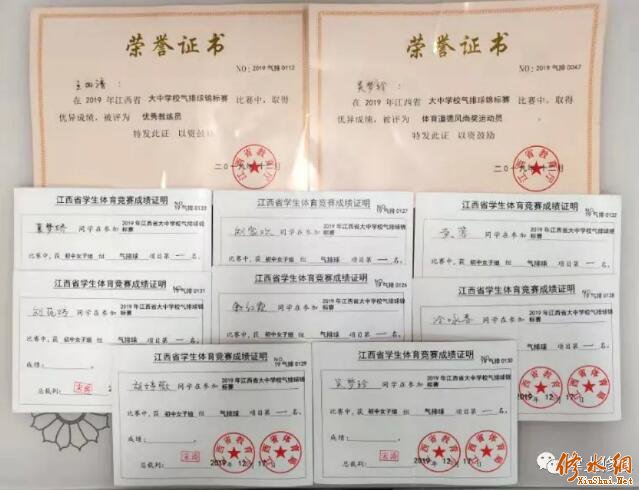 荣誉证书
NO：2019 气排 0112
在 2019 年江西省 大中学校气排球锦标赛 比赛中，取得
优异成绩，被评为 优秀教练员
特发此证 以资鼓励
江西省教育厅
荣誉证书
NO：2019 气排 0047
吴梦玲：
在 2019 年江西省 大中学校气排球锦标赛 比赛中，取得
优异成绩，被评为 体育道德风尚奖运动员
特发此证 以资鼓励
江西省教育厅
江西省学生体育竞赛成绩证明
同学在参加 2019 年江西省大中学校气排球锦标赛
比赛中，获 初中女子组 组 气排球 项目第 一 名。
江西省学生体育竞赛成绩证明
气排 0127
同学在参加 2019 年江西省大中学校气排球锦标赛
比赛中，获 初中女子组 组 气排球 项目第 一 名。
江西省学生体育竞赛成绩证明
同学在参加 2019 年江西省大中学校气排球锦标赛
比赛中，获 初中女子组 组 气排球 项目第 一 名。
江西省学生体育竞赛成绩证明
气排 0131
同学在参加 2019 年江西省大中学校气排球锦标赛
比赛中，获 初中女子组 组 气排球 项目第 一 名。
成绩：
总裁判：
江西省学生体育竞赛成绩证明
同学在参加 2019 年江西省大中学校气排球锦标赛
比赛中，获 初中女子组 组 气排球 项目第 一 名。
江西省学生体育竞赛成绩证明
同学在参加 2019 年江西省大中学校气排球锦标赛
比赛中，获 初中女子组 组 气排球 项目第 一 名。
2019 年 12 月 17 日
江西省学生体育竞赛成绩证明
NO.
19 气排 0129
同学在参加 2019 年江西省大中学校气排球锦标赛
比赛中，获 初中女子组 组 气排球 项目第 一 名。
成绩：
总裁判：
2019 年 12 月 17 日
江西省教育厅
江西省体育局
江西省学生体育竞赛成绩证明
NO.
19 气排 0130
吴梦玲 同学在参加 2019 年江西省大中学校气排球锦标赛
比赛中，获 初中女子组 组 气排球 项目第 一 名。
成绩：
总裁判：
2019 年 12 月 17 日
江西省教育厅
江西省体育局
修水网
XiuShui.Net